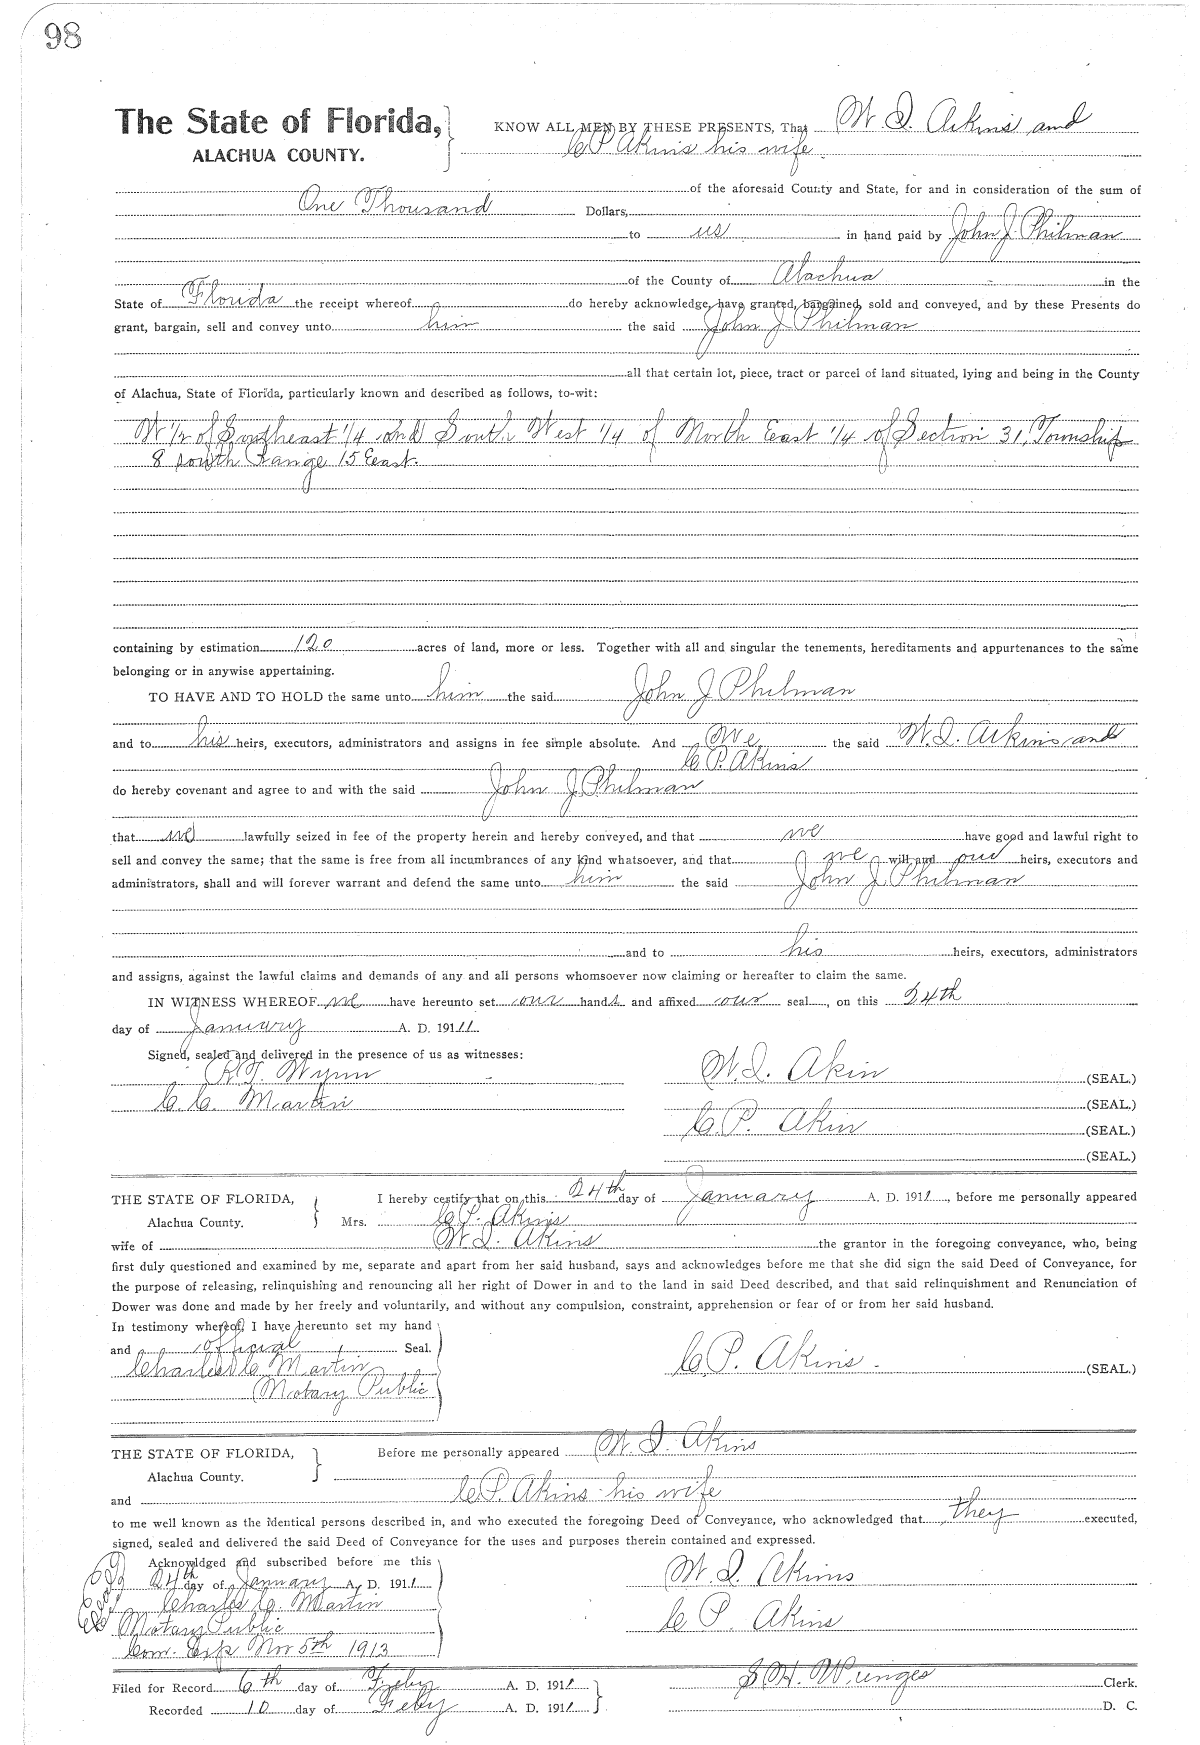 98
The State of Florida, KNOW ALL MEN BY THESE PRESENTS, That W. I. Akins and
ALACHUA COUNTY. C P Akins his wife
of the aforesaid County and State, for and in consideration of the sum of
One Thousand Dollars,
to us in hand paid by John J. Philman
of the County of Alachua in the
State of Florida the receipt whereof do hereby acknowledge, have granted, bargained, sold and conveyed, and by these Presents do
grant, bargain, sell and convey unto him the said John J Philman
all that certain lot, piece, tract or parcel of land situated, lying and being in the County
of Alachua, State of Florida, particularly known and described as follows, to-wit:
W 1/2 of Southeast 1/4 and South West 1/4 of North East 1/4 of Section 31, Township
8 south Range 15 East.
containing by estimation 120 acres of land, more or less. Together with all and singular the tenements, hereditaments and appurtenances to the same
belonging or in anywise appertaining.
TO HAVE AND TO HOLD the same unto him the said John J Philman
and to his heirs, executors, administrators and assigns in fee simple absolute. And We the said W. I. Akins and
C P. Akins
do hereby covenant and agree to and with the said John J. Philman
that we lawfully seized in fee of the property herein and hereby conveyed, and that we have good and lawful right to
sell and convey the same; that the same is free from all incumbrances of any kind whatsoever, and that we will and our heirs, executors and
administrators, shall and will forever warrant and defend the same unto him the said John J Philman
and to his heirs, executors, administrators
and assigns, against the lawful claims and demands of any and all persons whomsoever now claiming or hereafter to claim the same.
IN WITNESS WHEREOF we have hereunto set our hands and affixed our seal, on this 24th
day of January A. D. 1911
Signed, sealed and delivered in the presence of us as witnesses:
Wynn W. I. Akin (SEAL.)
C. C. Martin (SEAL.)
C. P. Akin (SEAL.)
(SEAL.)
THE STATE OF FLORIDA, I hereby certify that on this 24th day of January A. D. 1911, before me personally appeared
Alachua County. Mrs. C P. Akins
wife of W. I. Akins the grantor in the foregoing conveyance, who, being
first duly questioned and examined by me, separate and apart from her said husband, says and acknowledges before me that she did sign the said Deed of Conveyance, for
the purpose of releasing, relinquishing and renouncing all her right of Dower in and to the land in said Deed described, and that said relinquishment and Renunciation of
Dower was done and made by her freely and voluntarily, and without any compulsion, constraint, apprehension or fear of or from her said husband.
In testimony whereof, I have hereunto set my hand
and official Seal.
Charles C. Martin C P. Akins. (SEAL.)
Notary Public
THE STATE OF FLORIDA, Before me personally appeared W. I. Akins
Alachua County.
and C P. Akins his wife
to me well known as the identical persons described in, and who executed the foregoing Deed of Conveyance, who acknowledged that they executed,
signed, sealed and delivered the said Deed of Conveyance for the uses and purposes therein contained and expressed.
Acknowldged and subscribed before me this
24th day of January A. D. 1911 W. I. Akins
Charles C. Martin
Notary Public C P. Akins
Com. Exp Nov 5th 1913
Filed for Record 6th day of Feby A. D. 1911 S. H. Wienges Clerk.
Recorded 10 day of Feby A. D. 1911 D. C.